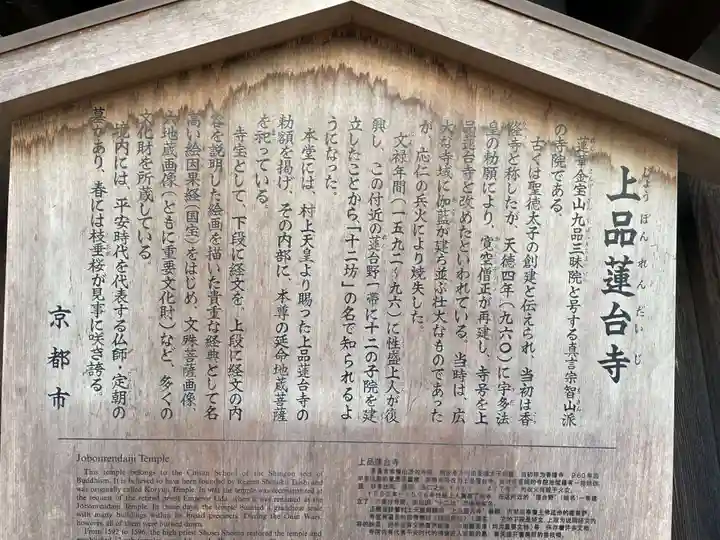 上品蓮台寺
じょうぼんれんだいじ
蓮華金宝山九品三昧院と号する真言宗智山派
の寺院である。
古くは聖徳太子の創建と伝えられ、当初は香
隆寺と称したが、天徳四年(九六〇)に宇多法
皇の勅願により、寛空僧正が再建し、寺号を上
品蓮台寺と改めたといわれている。当時は、広
大な寺域に伽藍が建ち並ぶ壮大なものであった
が、応仁の兵火により焼失した。
文禄年間(一五九二〜九六)に性盛上人が復
興し、この付近の蓮台野一帯に十二の子院を建
立したことから、「十二坊」の名で知られるよ
うになった。
本堂には、村上天皇より賜った上品蓮台寺の
勅額を掲げ、その内部に、本尊の延命地蔵菩薩
を祀っている。
寺宝として、下段に経文を、上段に経文の内
容を説明した絵画を描いた貴重な経典として名
高い絵因果経(国宝)をはじめ、文殊菩薩画像、
六地蔵画像(ともに重要文化財)など、多くの
文化財を所蔵している。
境内には、平安時代を代表する仏師・定朝の
墓があり、春には枝垂桜が見事に咲き誇る。
京都市
Jobonrendaiji Temple
This temple belongs to the Chisan School of the Shingon sect of
Buddhism. It is believed to have been founded by Regent Shotoku Taishi and
was originally called Koryuji Temple. In 960 the temple was reconstructed at
the request of the retired priest Emperor Uda, when it was renamed as the
Jobonrendaiji Temple. In those days, the temple boasted a grandiose scale
with many buildings within its broad precincts. During the Onin Wars,
however, all of them were burned down.
From 1592 to 1596, the high priest Shosei Shonin restored the temple and
上品蓮台寺